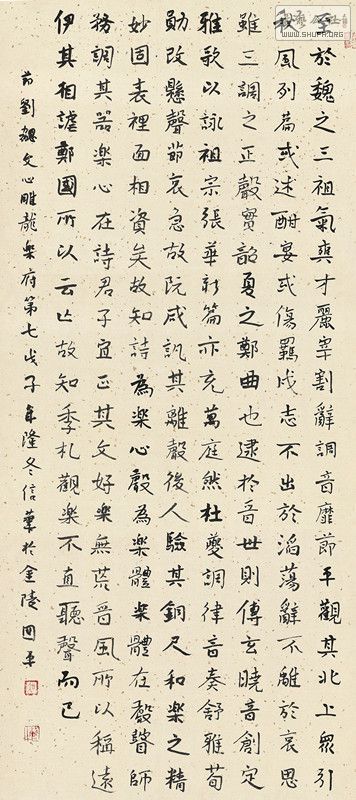 至於魏之三祖氣爽才麗宰割辭調音靡節平觀其北上眾引
秋風列篇或述酣宴或傷羈戍志不出於滔蕩辭不離於哀思
雖三調之正聲實韶夏之鄭曲也逮於音世則傅玄曉音創定
雅歌以詠祖宗張華新篇亦充萬庭然杜夔調律音奏舒雅荀
勛改懸聲節哀急故阮咸訊其離聲後人驗其銅尺和樂之精
妙固表裡面相資矣故知詩為樂心聲為樂體樂體在聲瞽師
務調其器樂心在詩君子宜正其文好樂無荒晉風所以稱遠
伊其相謔鄭國所以云亡故知季札觀樂不直聽聲而已
節劉勰文心雕龍樂府第七戊子年隆冬信筆於金陵國平
WWW.SHUFA.ORG